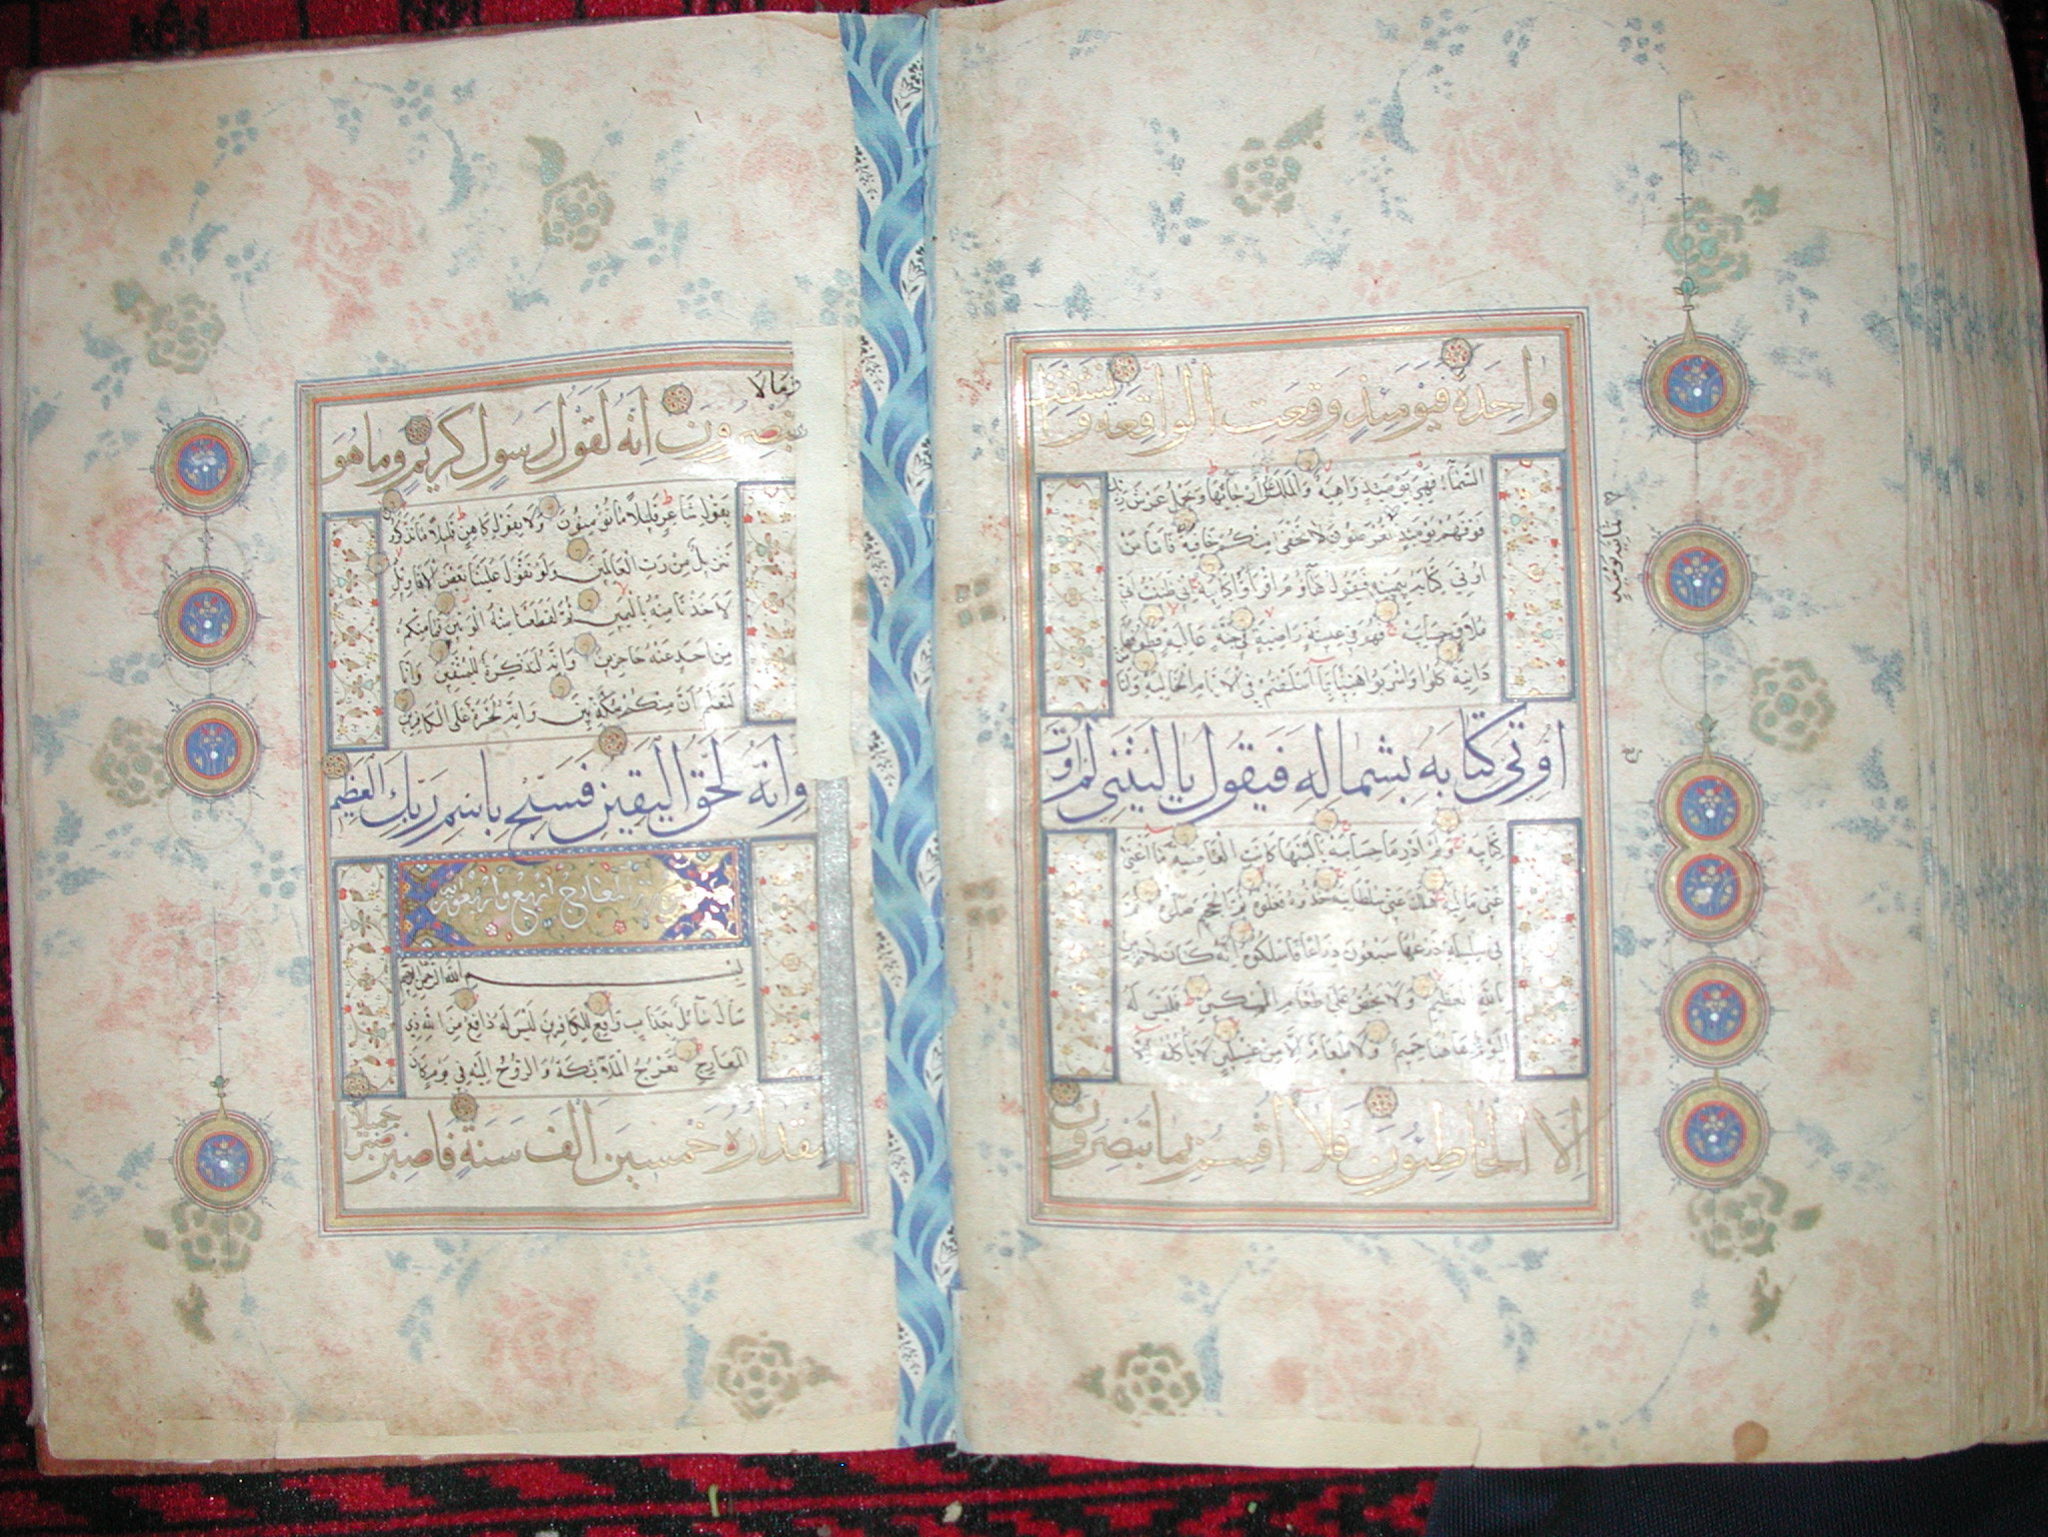 واحدة فيومئذ وقعت الواقعة وانشقت
السماء فهي يومئذ واهية والملك على أرجائها ويحمل عرش ربك
فوقهم يومئذ ثمانية يومئذ تعرضون لا تخفى منكم خافية فاما من
اوتي كتابه بيمينه فيقول هاؤم اقرؤا كتابيه اني ظننت اني
ملاق حسابيه فهو في عيشة راضية في جنة عالية قطوفها
دانية كلوا واشربوا هنيئا بما أسلفتم في الايام الخالية واما من
اوتي كتابه بشماله فيقول يا ليتني لم اوت
كتابيه ولم ادر ما حسابيه يا ليتها كانت القاضية ما اغنى
عني ماليه هلك عني سلطانيه خذوه فغلوه ثم الجحيم صلوه ثم
في سلسلة ذرعها سبعون ذراعا فاسلكوه انه كان لا يؤمن
بالله العظيم ولا يحض على طعام المسكين فليس له
اليوم هاهنا حميم ولا طعام الا من غسلين لا يأكله الا
الا الخاطئون فلا اقسم بما تبصرون
ثمانية يومئذ
وما لا
تبصرون انه لقول رسول كريم وما هو
بقول شاعر قليلا ما تؤمنون ولا بقول كاهن قليلا ما تذكرون
تنزيل من رب العالمين ولو تقول علينا بعض الاقاويل
لاخذنا منه باليمين ثم لقطعنا منه الوتين فما منكم
من احد عنه حاجزين وانه لتذكرة للمتقين وانا
لنعلم ان منكم مكذبين وانه لحسرة على الكافرين
وانه لحق اليقين فسبح باسم ربك العظيم
سورة المعارج اربع واربعون اية
بسم الله الرحمن الرحيم
سأل سائل بعذاب واقع للكافرين ليس له دافع من الله ذي
المعارج تعرج الملائكة والروح اليه في يوم كان
مقداره خمسين الف سنة فاصبر صبرا جميلا